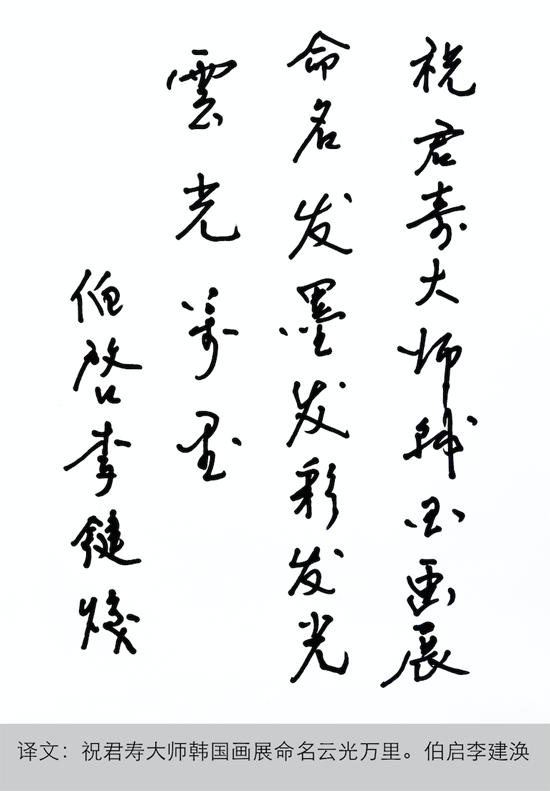 祝君寿大师韩国画展
命名发墨发彩发光
雲光萬里
伯啓李鍵煥
译文：祝君寿大师韩国画展命名云光万里。伯启李建涣